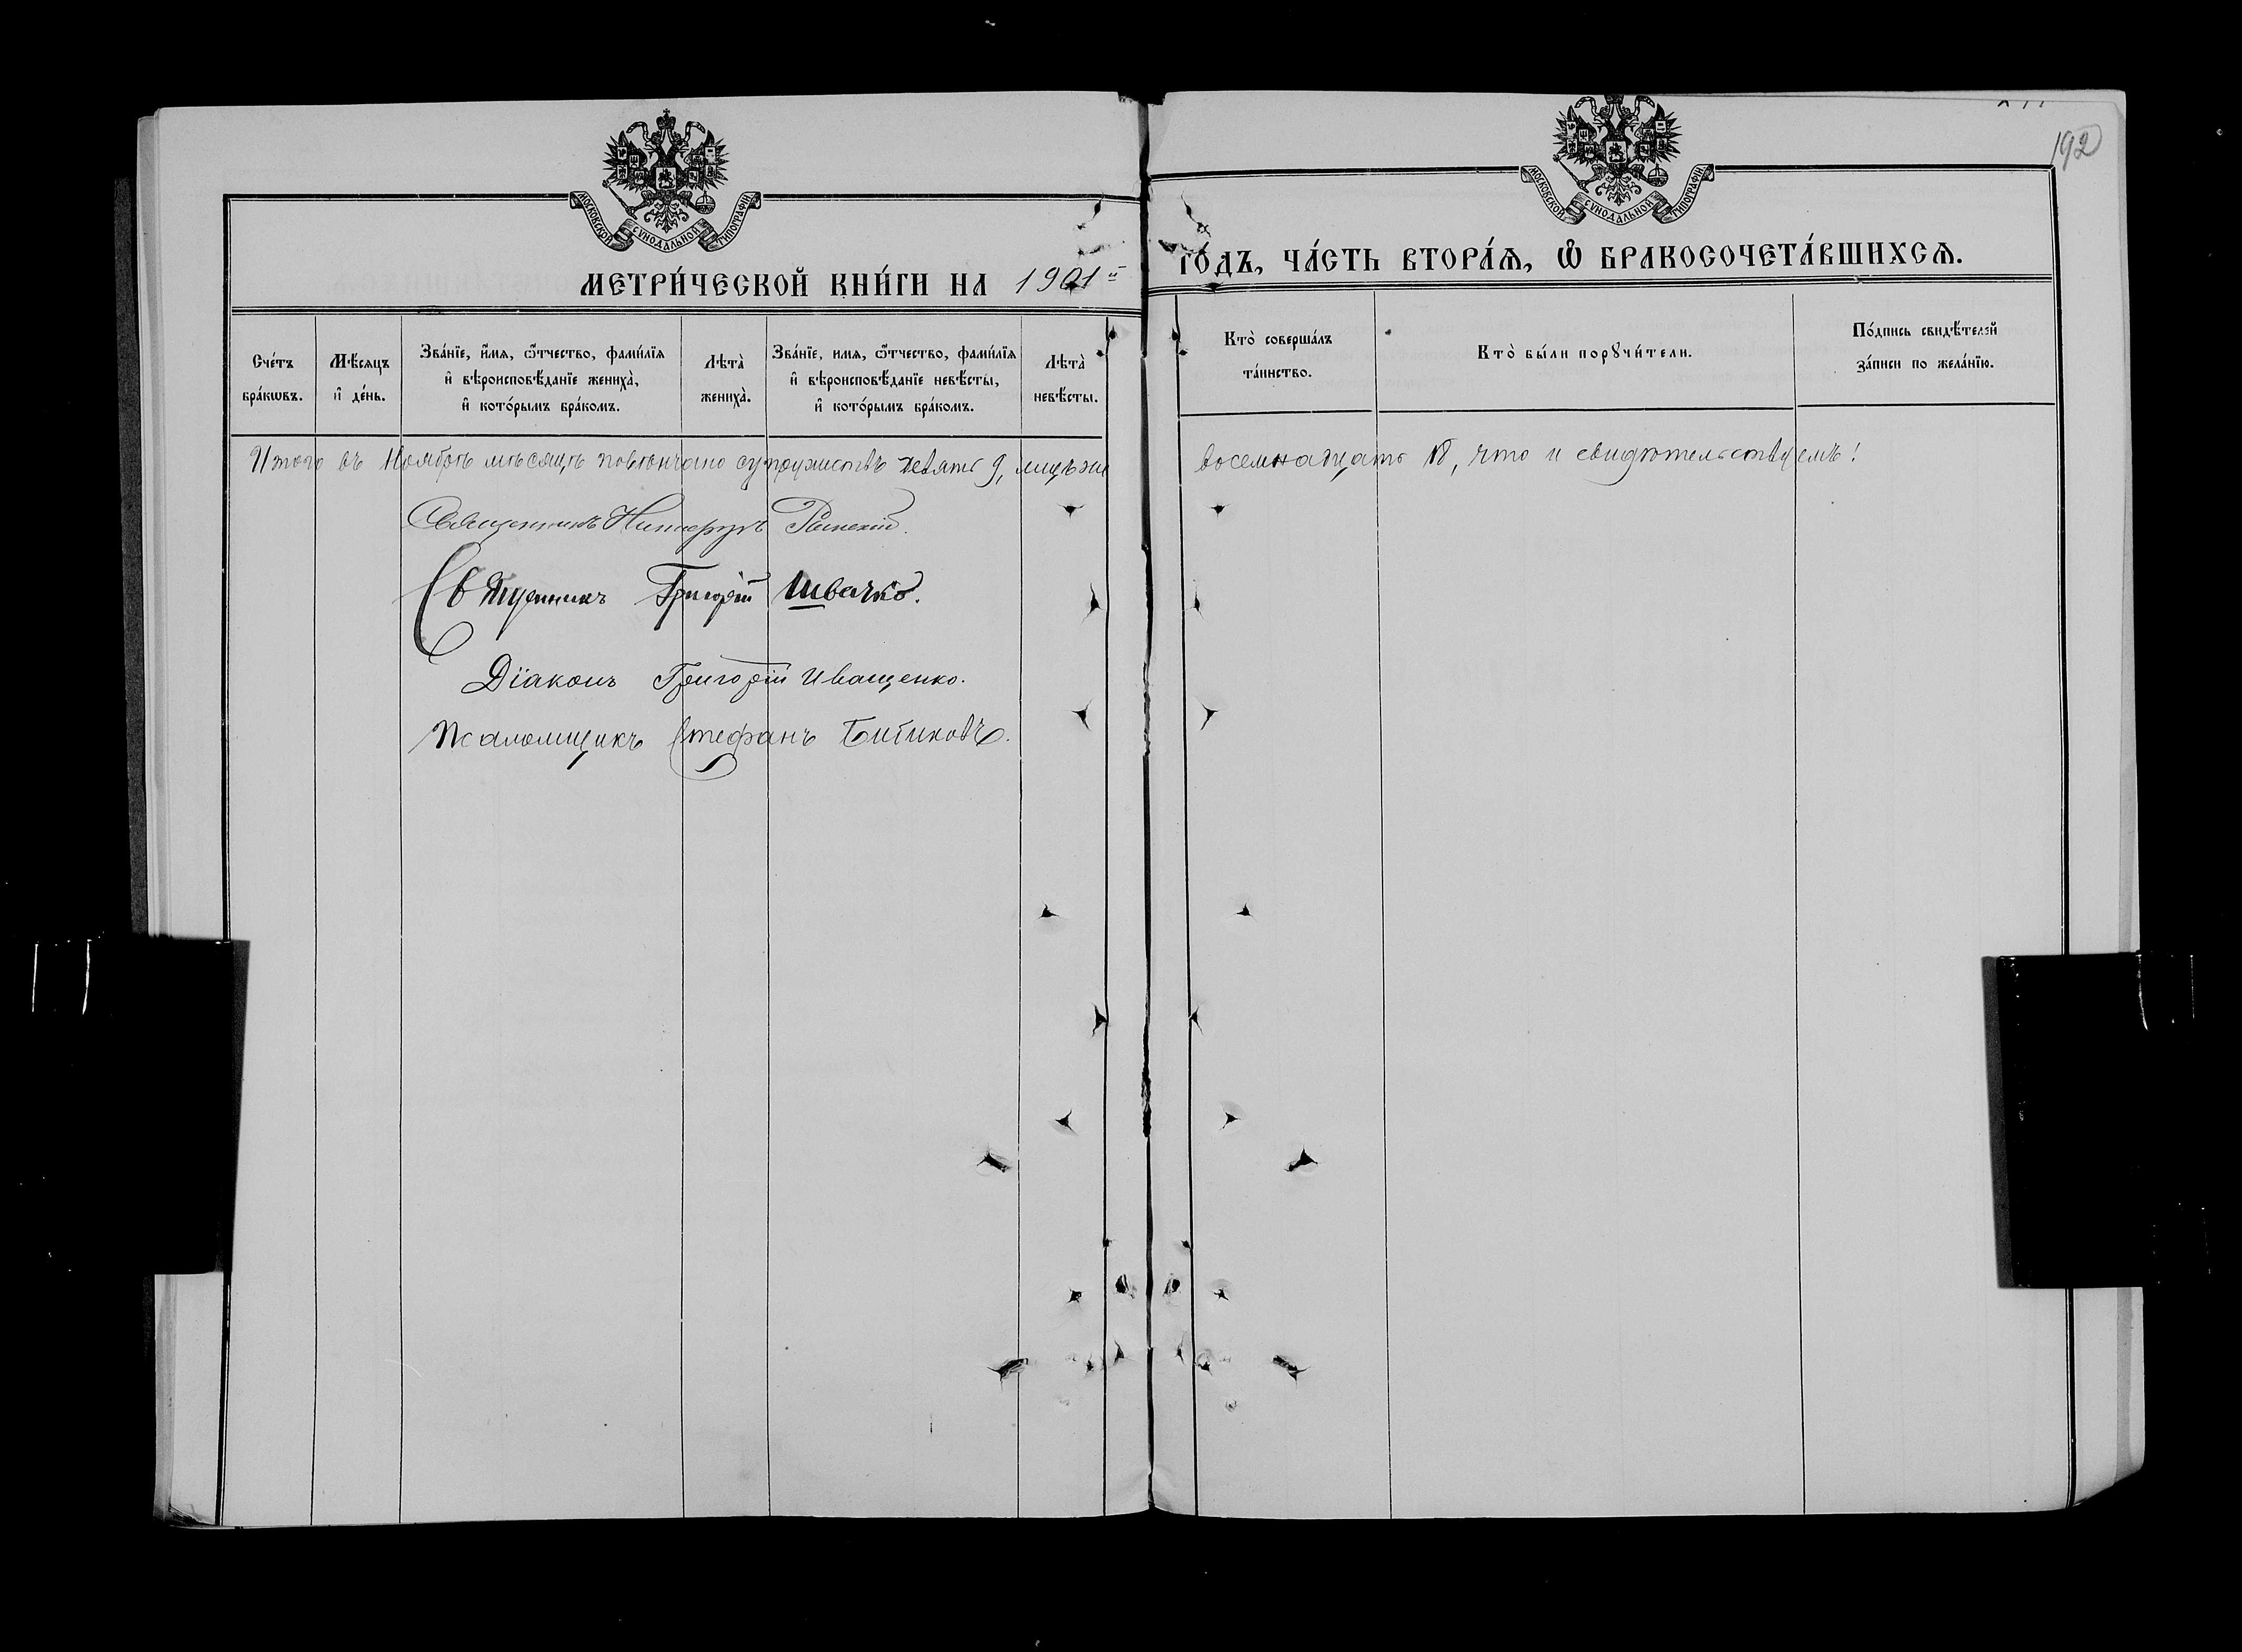 192
МОСКОВСКОЙ СѴНОДАЛЬНОЙ ТИПОГРАФІИ
МОСКОВСКОЙ СѴНОДАЛЬНОЙ ТИПОГРАФІИ
МЕТРИ́ЧЕСКОЙ КНИ́ГИ НА 1901й
ГО́ДЪ, ЧА́СТЬ ВТОРА́Ѧ, Ѽ БРАКОСОЧЕТА́ВШИХСѦ.
Сче́тъ
бра́кѡвъ.
Мѣ́сѧцъ
и҆ де́нь.
Зва́нїе, и҆́мѧ, ѻ҆́тчество, фами́лїѧ
и҆ вѣроисповѣ́данїе жениха̀,
и҆ кото́рымъ бра́комъ.
Лѣта̀
жениха̀.
Зва́нїе, имѧ, ѻ҆́тчество, фами́лїѧ
и҆ вѣроисповѣ́данїе невѣ́сты,
и҆ кото́рымъ бра́комъ.
Лѣта̀
невѣ́сты.
Кто̀ соверша́лъ
та́инство.
Кто̀ бы́ли порꙋчи́тели.
По́дпись свидѣ́телей
за́писи по жела́нїю.
Итого въ Ноябрѣ мѣсяцѣ повѣнчано супружествъ девять 9, лицъ же
восемнадцать 18, что и свидѣтельствуемъ!
Священникъ
Священникъ Григорій Швачко.
Діаконъ Григорій Иващенко.
Псаломщикъ Стефанъ Битиковъ.